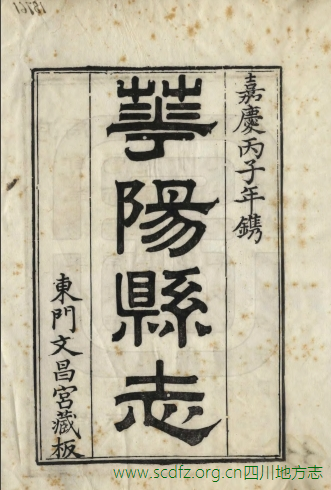 嘉慶丙子年鐫
華陽縣志
東門文昌宮藏板
www.scdfz.org.cn四川地方志